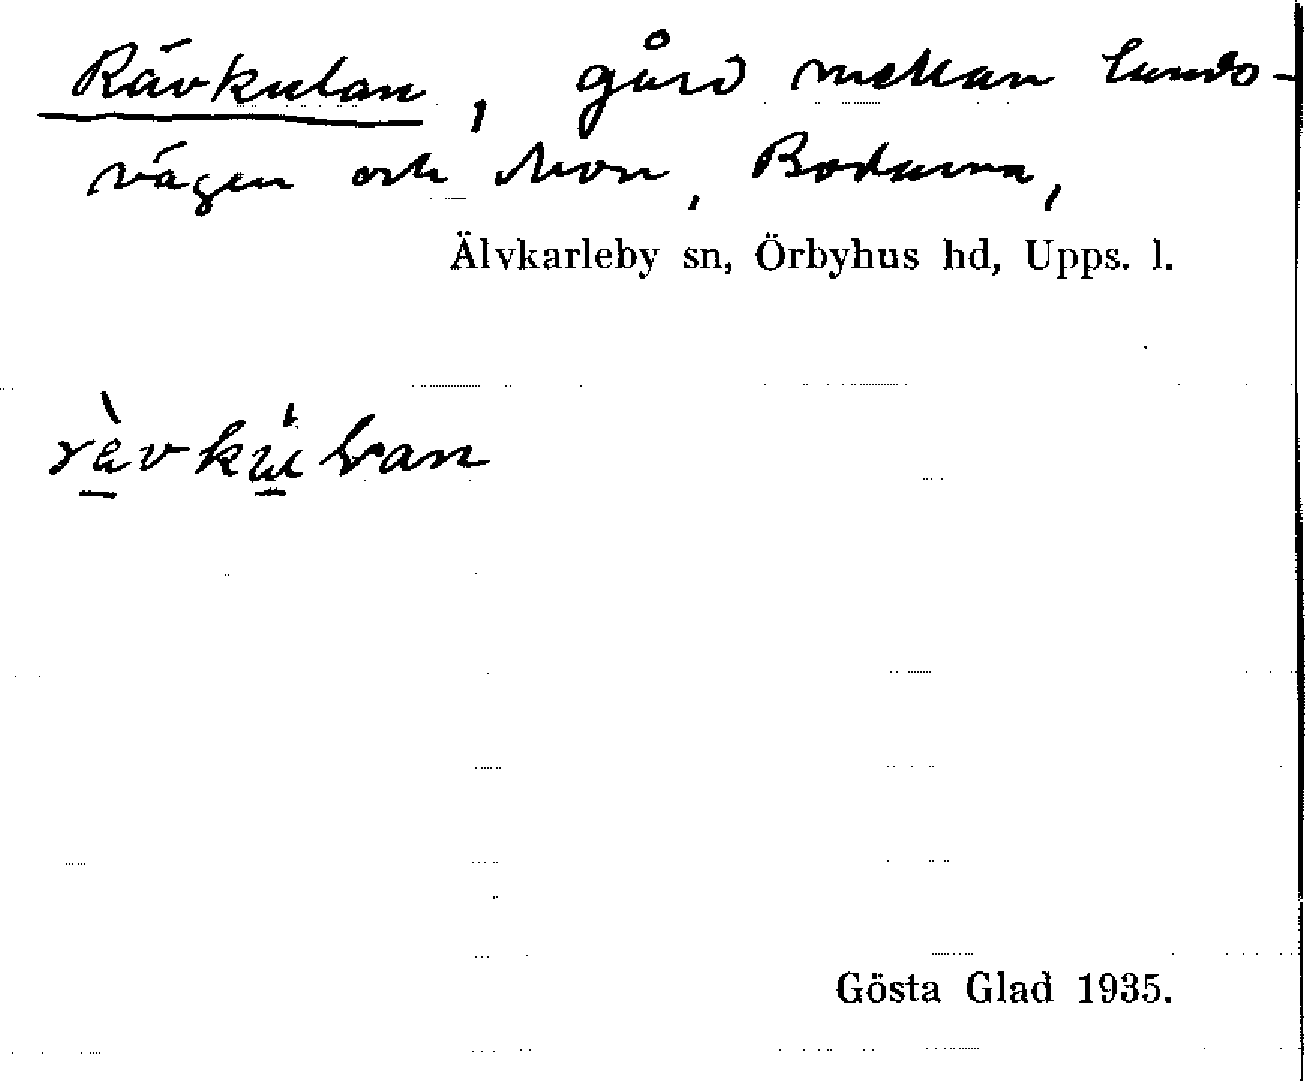 Rävkulan, gård mellan lands-
vägen och Mon, Bodarna,
Älvkarleby sn, Örbyhus hd, Upps. l.
Gösta Glad 1935.